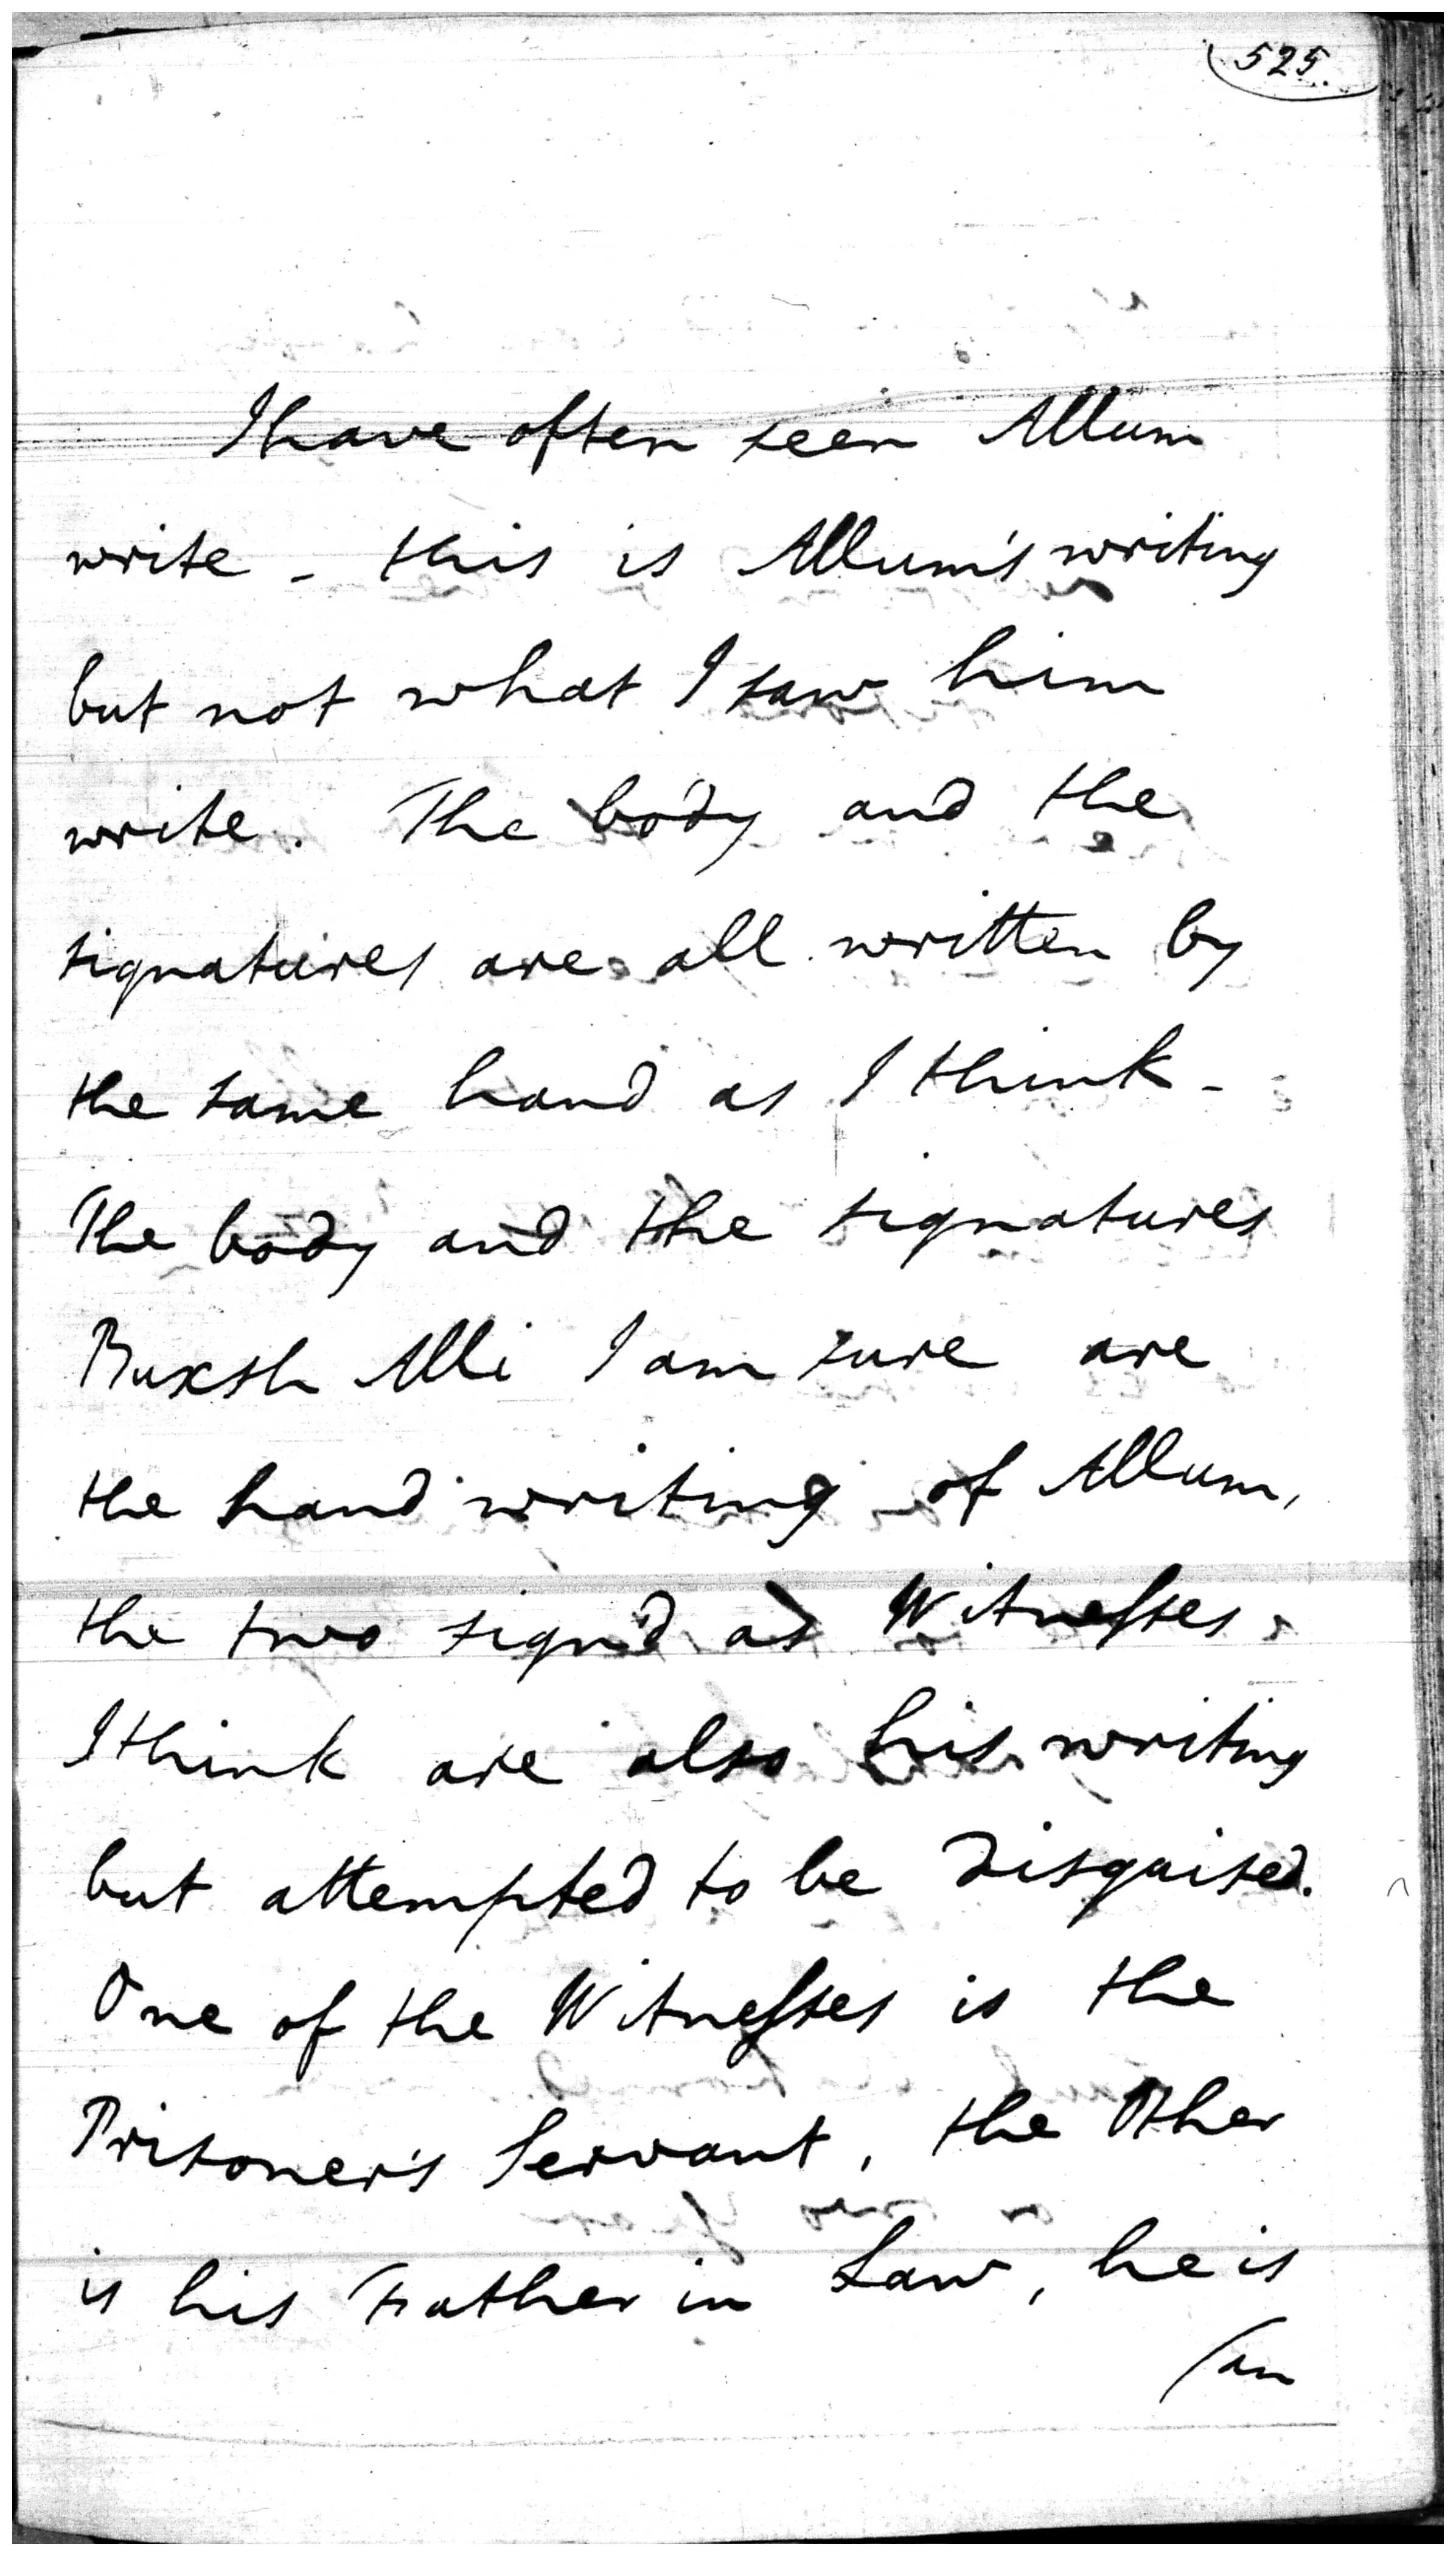 525.
I have often seen Allum
write - this is Allum's writing
but not what I saw him
write. The body and the
signatures are all written by
the same hand as I think -
The body and the signatures
Buxsh Alli I am sure are
the hand writing of Allum,
the two sign'd as Witnesses
I think are also his writing
but attempted to be disguised.
One of the Witnesses is the
Prisoner's Servant, the Other
is his Father in Law, he is
/an